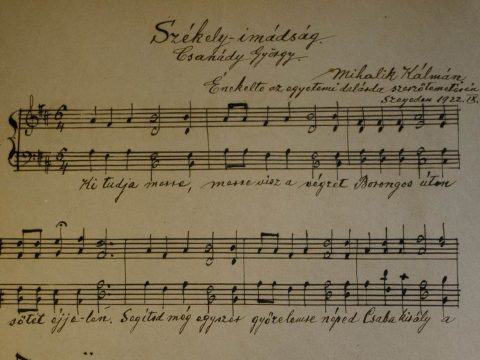 Székely-imádság.
Csanády György.
Mihalik Kálmán.
Énekelte az egyetemi dalárda szerzőtemetésén
Szegeden 1922. IX.
6 4
6 4
Ki tudja merre, merre visz a végzet Borongos úton
sötét éjje-len. Segitsd még egyszer győzelemre néped Csaba király a